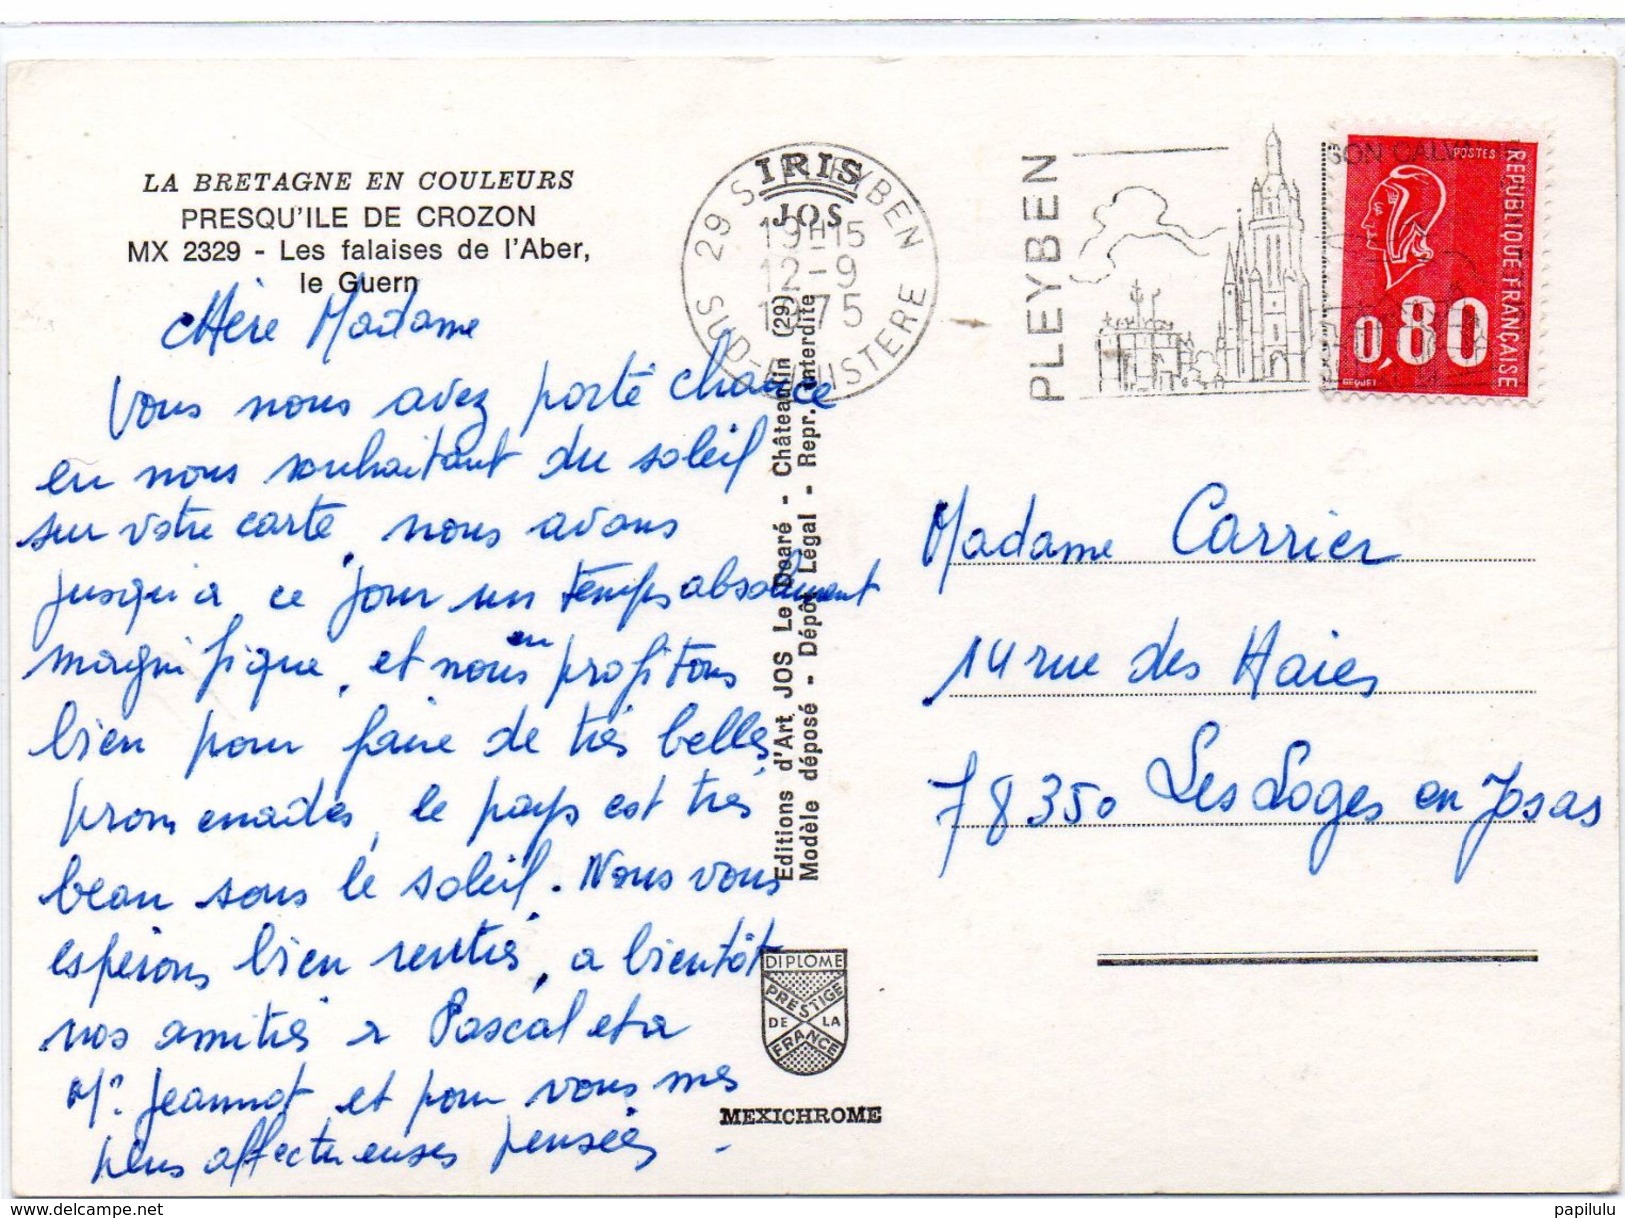 LA BRETAGNE EN COULEURS
PRESQU'ILE DE CROZON
MX 2329 - Les falaises de l'Aber,
le Guern
chère Madame
Vous nous avez porté chance
en nous souhaitant du soleil
sur votre carte, nous avons
jusqu'a ce jour un temps absolument
magnifique, et nous en profitons
bien pour faire de très belles
promenades, le pays est très
beau sous le soleil. Nous vous
espérons bien rentrés, a bientôt
nos amitiés a Pascal et a
Mr. Jeannot et pour vous mes
plus affectueuses pensées -
IRIS
JOS
29 S PLEYBEN
19H15
12-9
1975
SUD-FINISTERE
PLEYBEN
SON CALVAIRE
POSTES
REPUBLIQUE FRANÇAISE
0,80
BEQUET
Editions d'Art JOS Le Doaré - Châteaulin (29)
Modèle déposé - Dépôt Légal - Repr. interdite
Madame Carrier
14 rue des Haies
78350 Les Loges en Josas
DIPLOME
PRESTIGE
DE LA
FRANCE
MEXICHROME
delcampe.net
papilulu